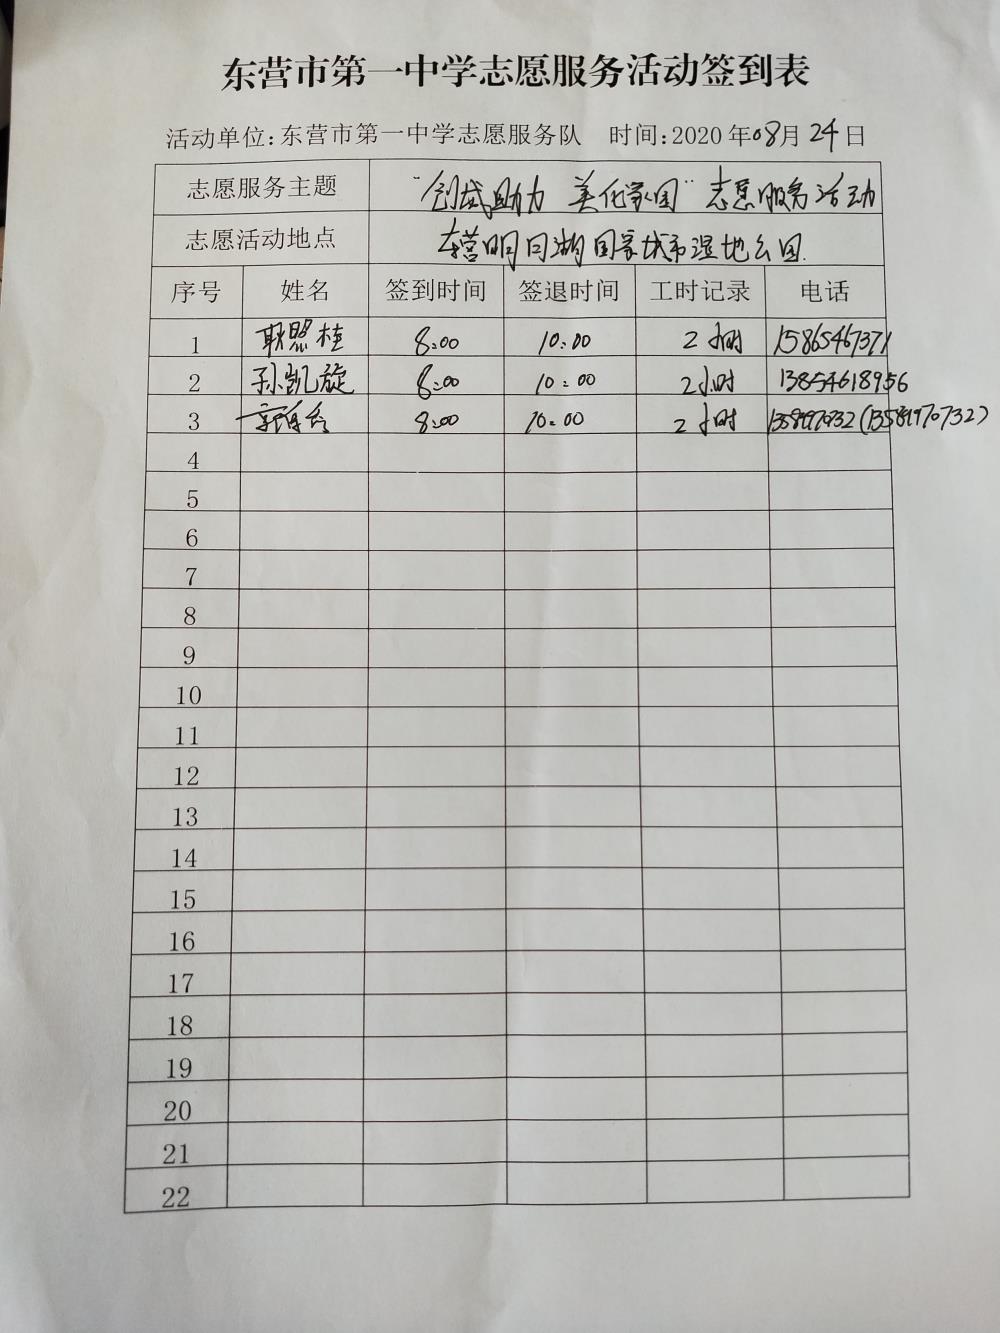 东营市第一中学志愿服务活动签到表
活动单位:东营市第一中学志愿服务队 时间:2020年08月24日
志愿服务主题 “创城助力 美化家园”志愿服务活动
志愿活动地点 东营明月湖国家城市湿地公园.
序号 姓名 签到时间 签退时间 工时记录 电话
1 耿照桂 8:00 10:00 2小时 15865467371
2 孙凯旋 8:00 10:00 2小时 13854618956
3 8:00 10:00 2小时 (13589970732)
4
5
6
7
8
9
10
11
12
13
14
15
16
17
18
19
20
21
22